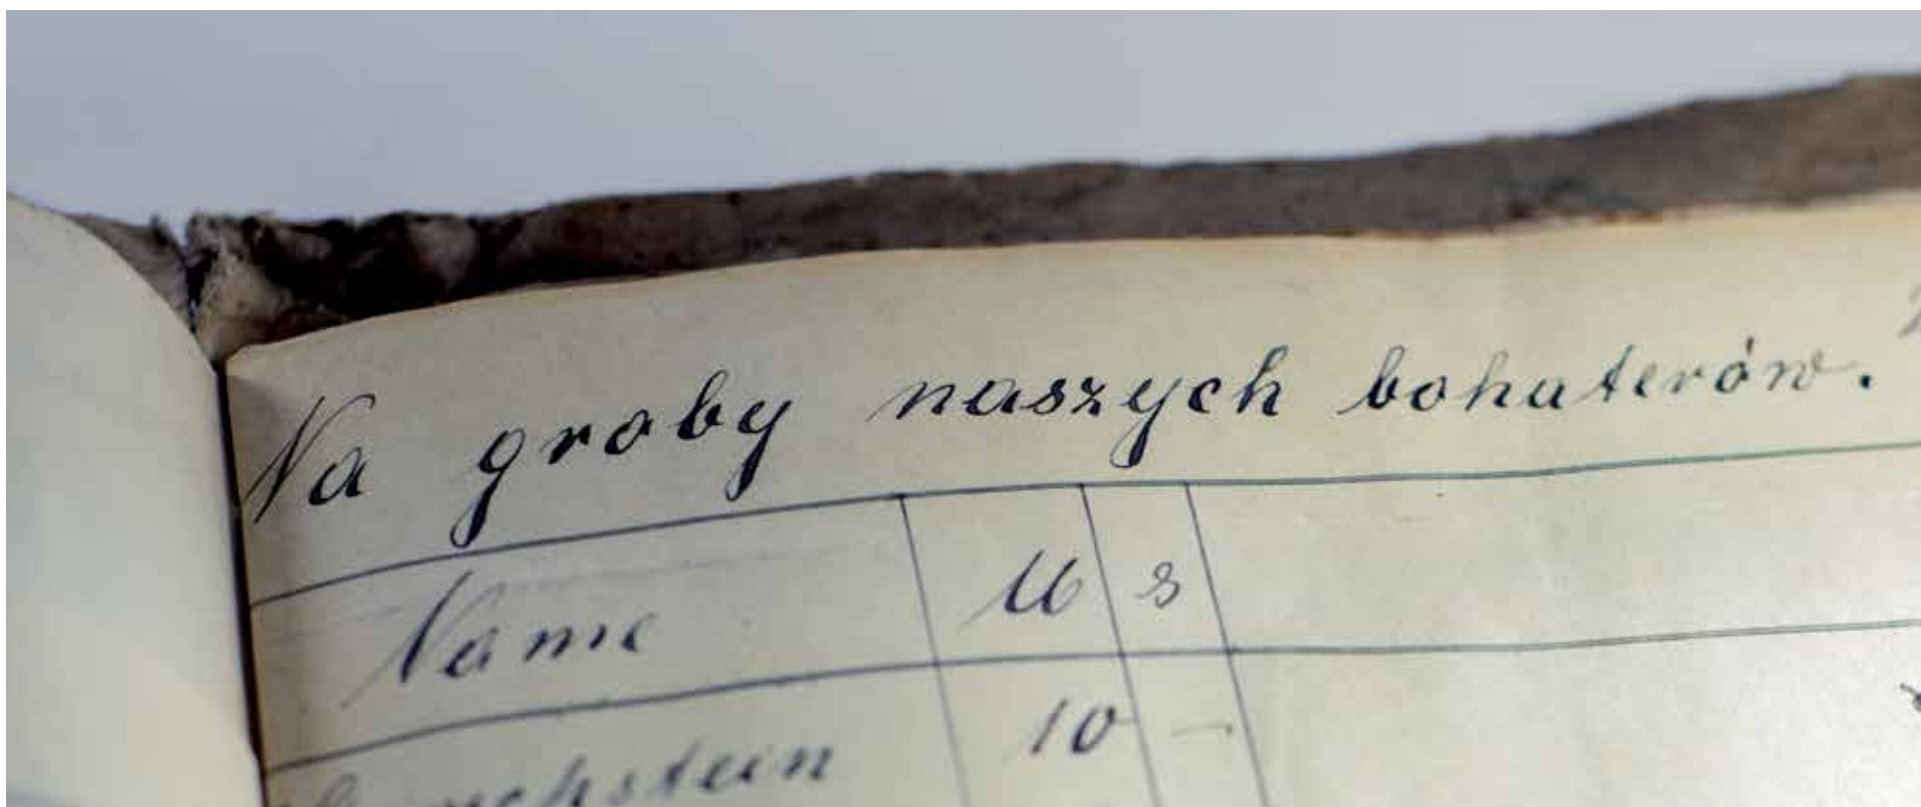 Na groby naszych bohaterów.
Name M s
10 —